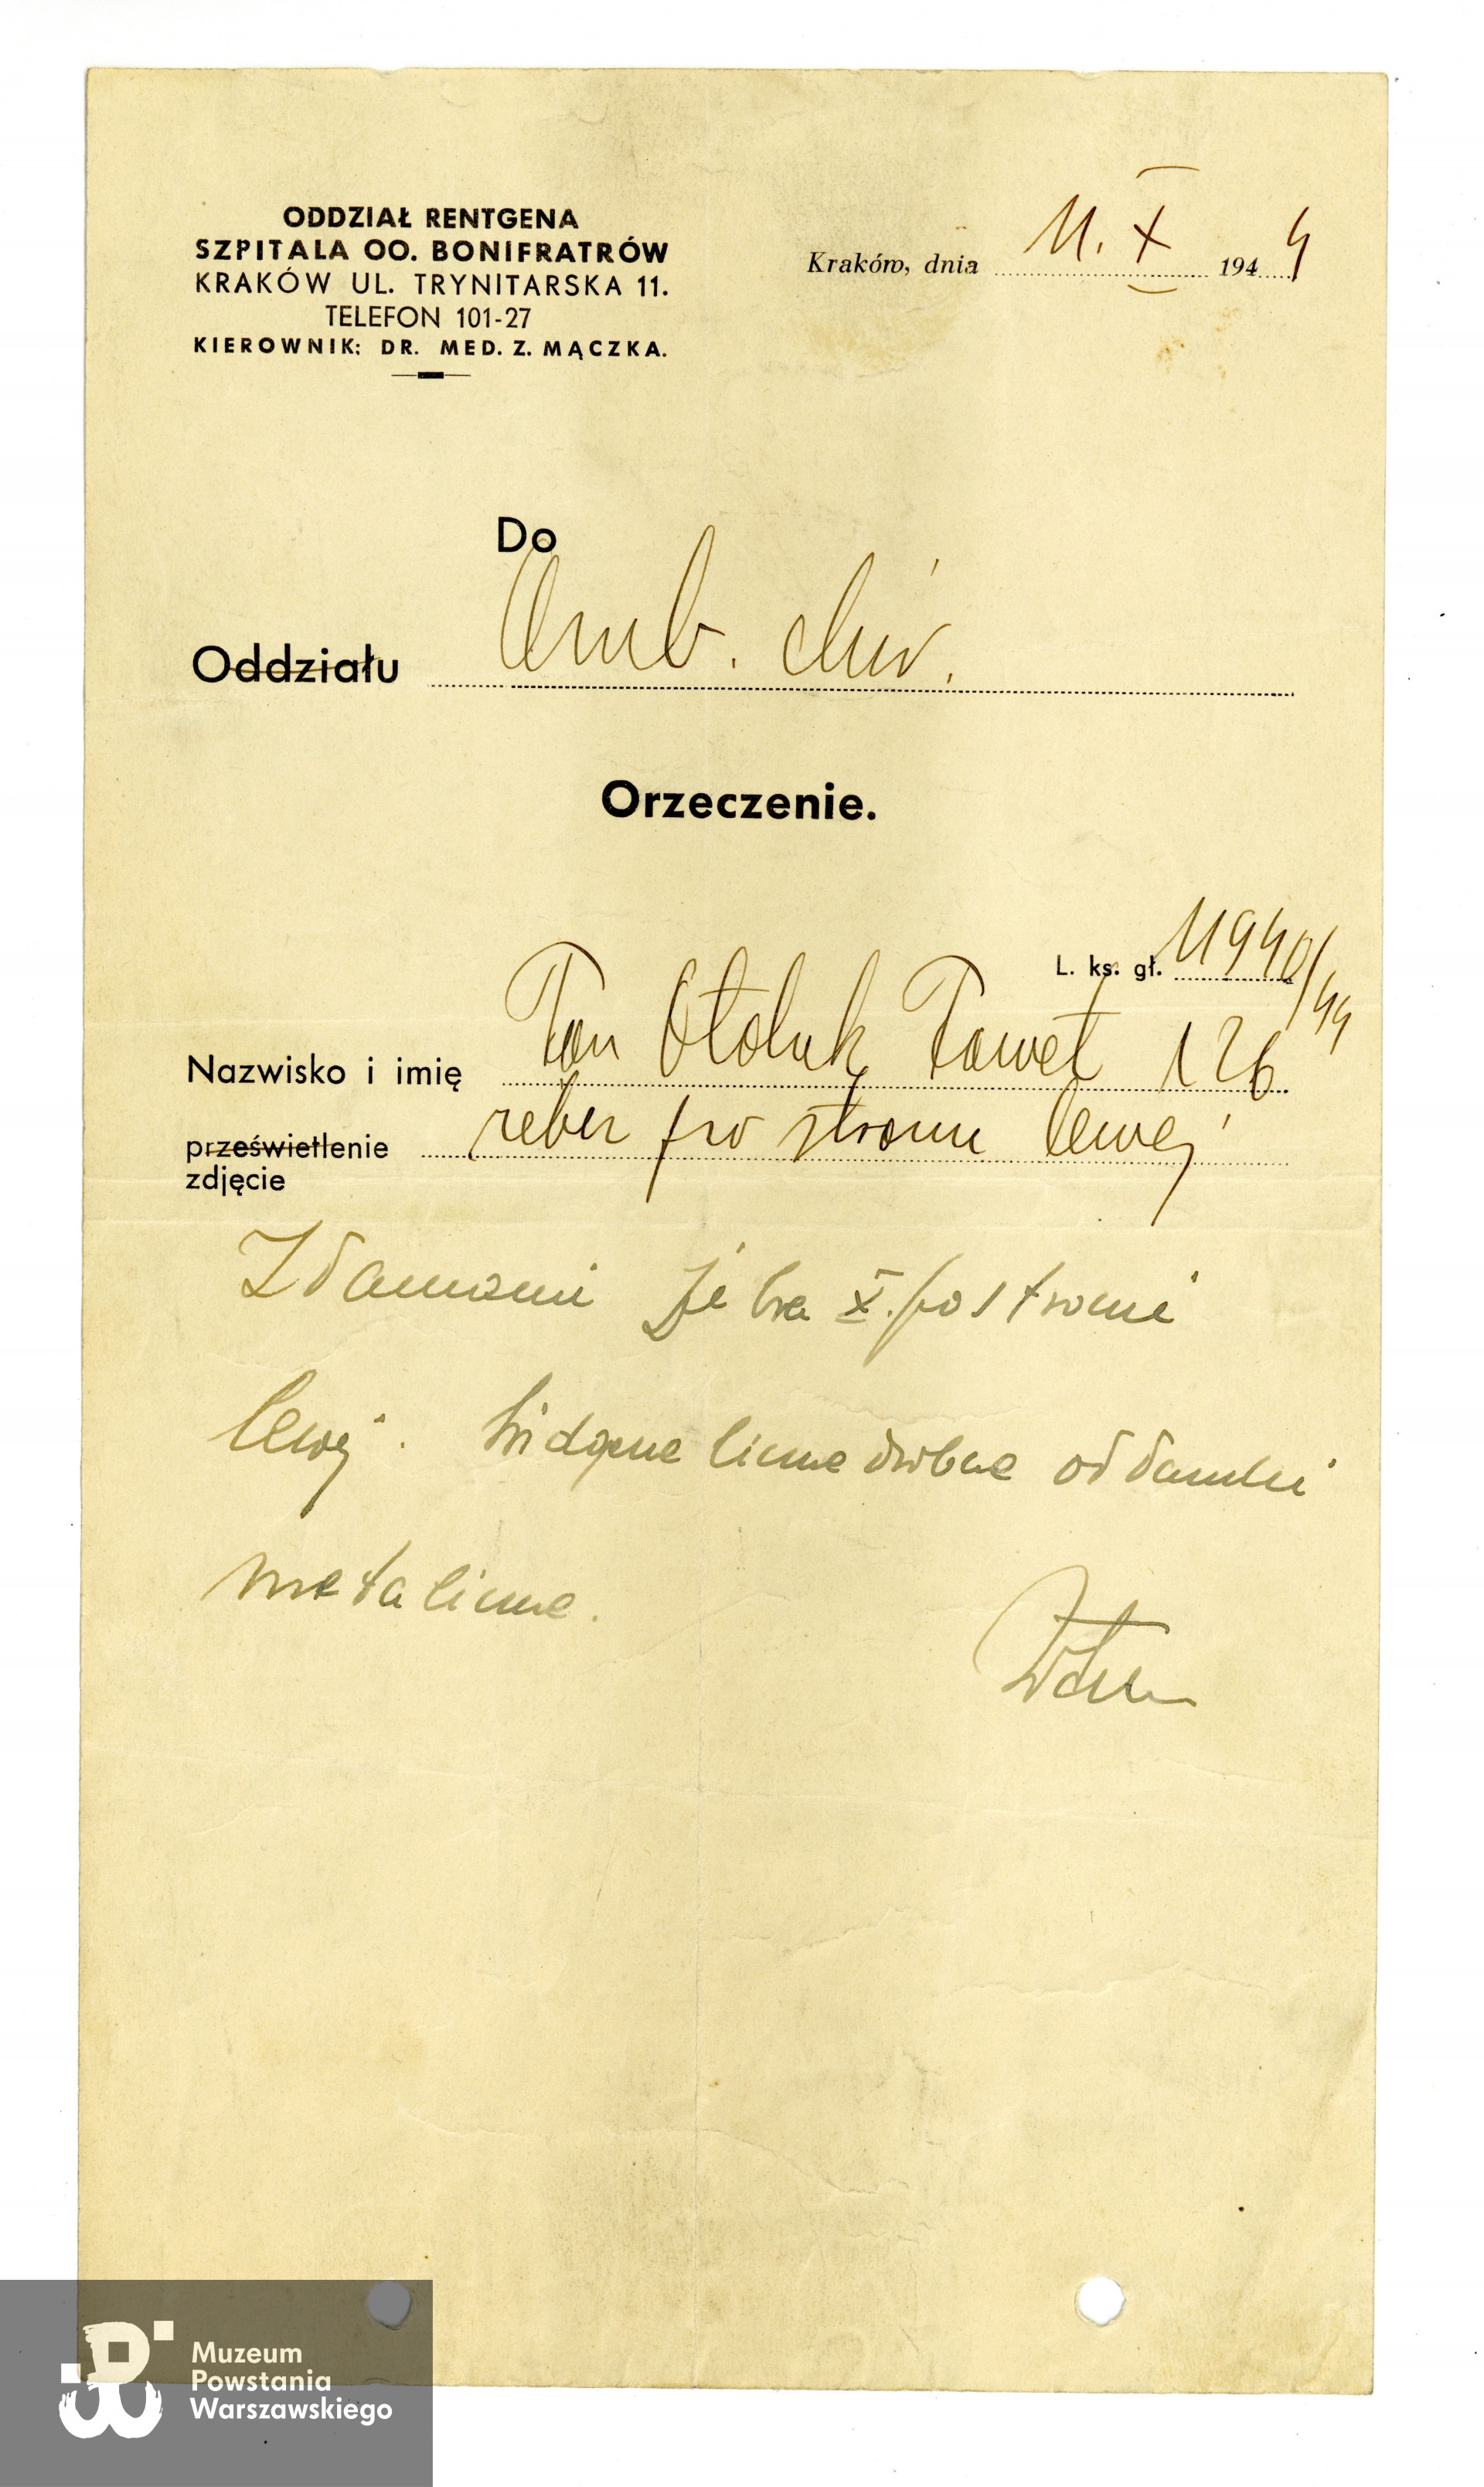 ODDZIAŁ RENTGENA
SZPITALA OO. BONIFRATRÓW
KRAKÓW UL. TRYNITARSKA 11.
TELEFON 101-27
KIEROWNIK: DR. MED. Z. MĄCZKA.
Kraków, dnia 11. X 1944
Do
Oddziału Amb. chir.
Orzeczenie.
L. ks. gł. 11940/44
Nazwisko i imię Pan Otoluk Paweł 126
prześwietlenie żeber po stronie lewej
zdjęcie
Złamanie żebra X. po stronie
lewej. Widoczne liczne drobne odłamki
metaliczne.
Muzeum
Powstania
Warszawskiego